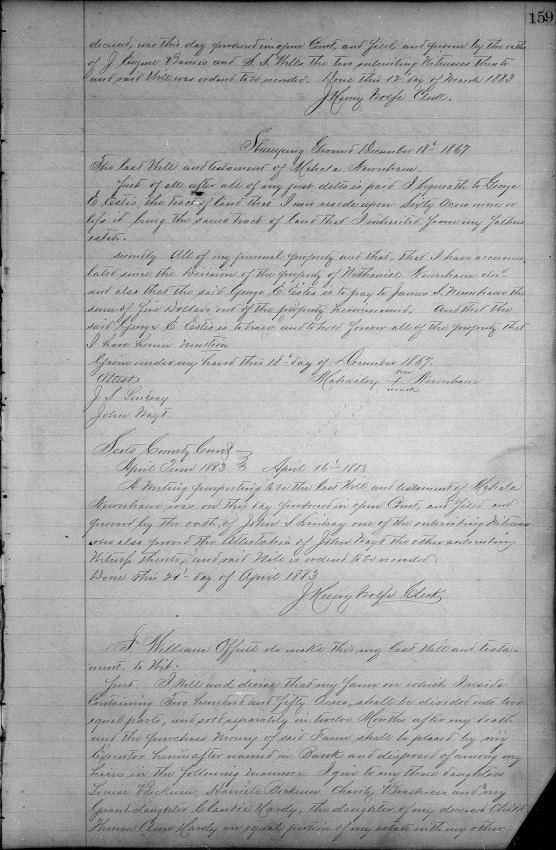 159
deceased, was this day produced in open Court, and filed, and proven by the oaths
of J. Eugene Barnes and S. S. Wells the two subscribing Witnesses thereto
and said Will was ordered to be recorded. Done this 12" day of March 1883
J Henry Wolfe Clerk.
Stamping Ground December 18" 1867
The last Will and testament of Mahala Newnham.
first of all after all of my just debts is paid I bequeath to George
E Estis, the tract of land that I now reside upon Sixty Acres more or
less it being the same tract of land that I inherited from my Fathers
estate.
secondly All of my personal property and that, that I have accumu
lated since the Division of the property of Nathaniel Newnham decd
and also that the said George E. Estis is to pay to James S. Newnham the
sum of five Dollars out of the property hereinnamed. And that the
said George E Estis is to have and to hold forever all of the property that
I have herein mention
Given under my hand this 18" day of December 1867.
Attest Mahaley her + mark Newnham
J. S. Lindsay
John Wayt.
Scott County Court
April Term 1883 April 16" 1883
A Writing purporting to be the last Will and testament of Mahala
Newnham was on this day produced in open Court, and filed and
proved by the oath, of John S Lindsay one of the subscribing Witnesses
who also proved the Attestation of John Wayt the other subscribing
Witness thereto, and said Will is ordered to be recorded
Done this 21" day of April 1883
J Henry Wolfe Clerk
I William Offutt do make this my last Will and testa-
ment, to Wit:
first. I Will and devise that my farm on which I reside
Containing Two Hundred and Fifty Acres, shall be divided into two
equal parts, and sold separately in twelve Months after my death
and the purchase Money of said Farm shall be placed by my
Executor hereinafter named in Bank and disposed of among my
heirs in the following manner. I give to my three daughters
Louise, Charity and my
Grand daughter Hardy, the daughter of my deceased Child
Ann Hardy an equal portion of my estate with my other